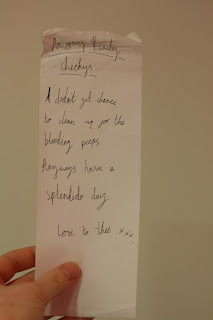 Morning Cheeky
cheekys.
I didn't get chance
to clean up for the
bleeding peeps.
Anyways have a
splendido day
Love to thee xxx